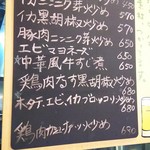 イカニンニク芽炒め
イカ黒胡椒炒め 650
豚肉ニンニク芽炒め 650
エビマヨネーズ 680
中華風牛すじ煮 650
鶏肉なす黒胡椒炒め 680
ホタテ、エビ、イカブロッコリ炒め
鶏肉カシューナッツ炒め 680